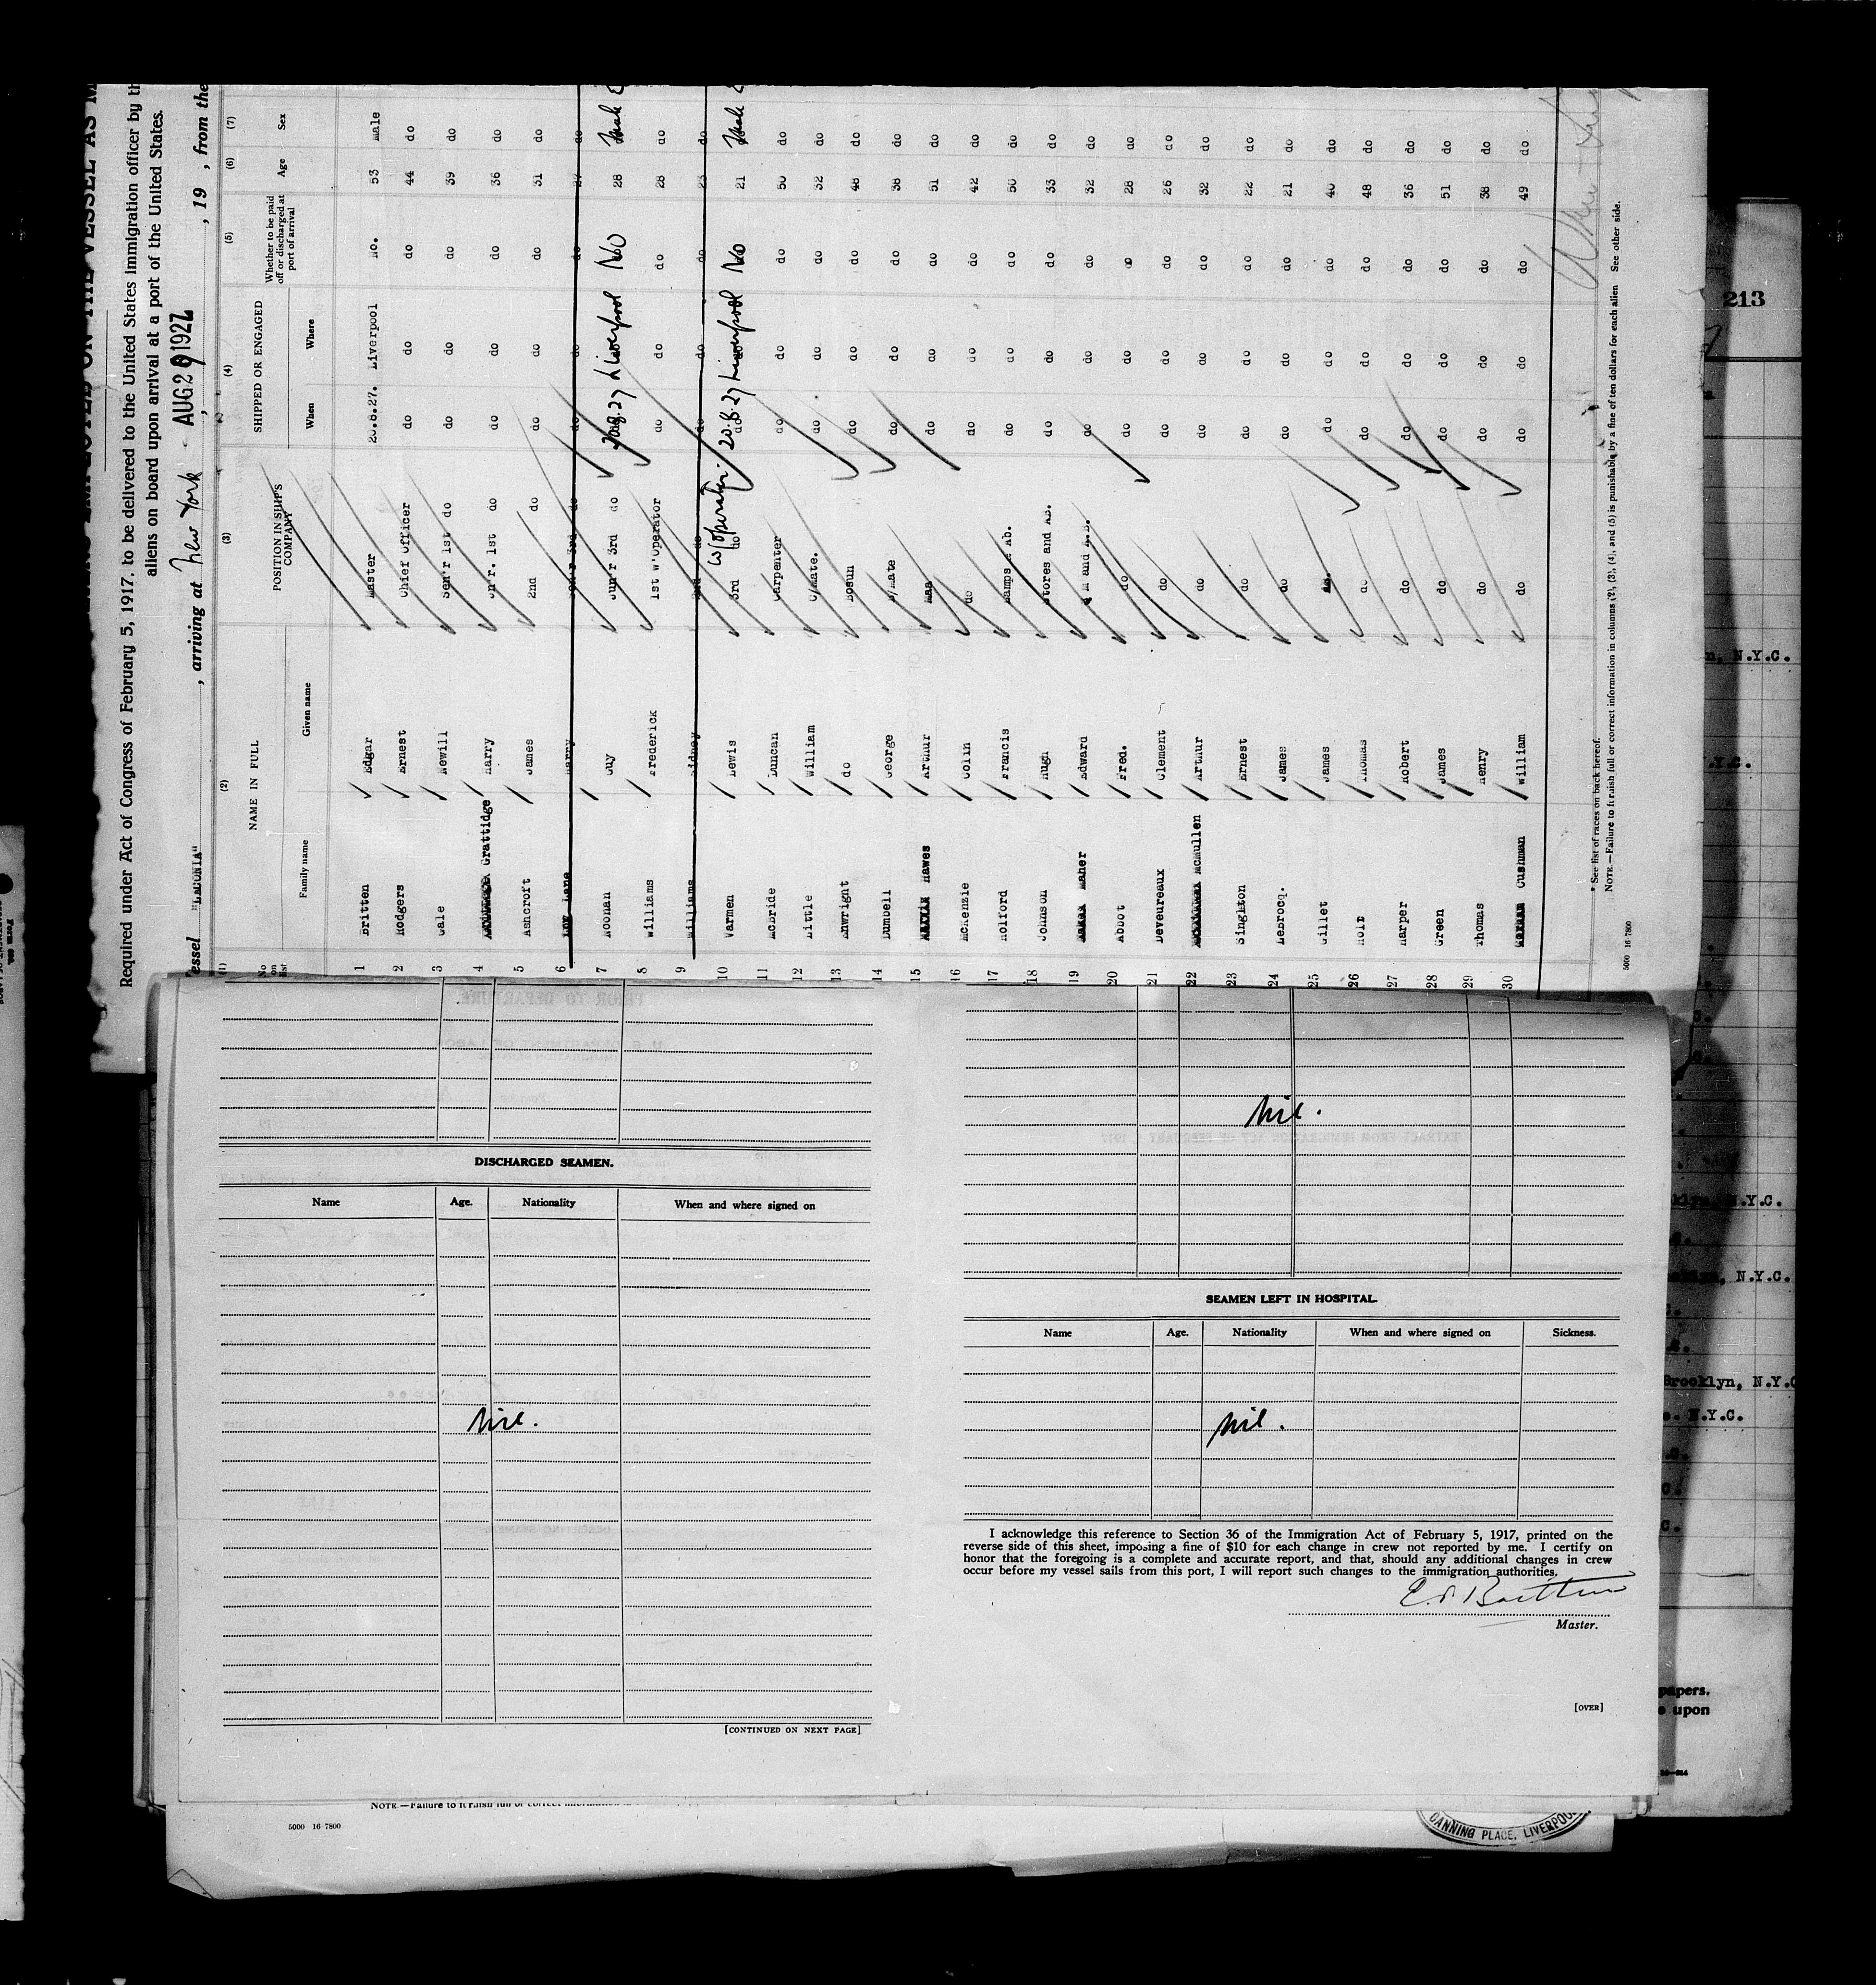 ALIENS EMPLOYED ON THE VESSEL AS M
Required under Act of Congress of February 5, 1917, to be delivered to the United States immigration officer by th
aliens on board upon arrival at a port of the United States.
essel "LACONIA" , arriving at New York AUG 29 1927 , 19 , from the
(1) (2) (3) (4) (5) (6) (7)
No on list NAME IN FULL POSITION IN SHIP'S COMPANY SHIPPED OR ENGAGED Whether to be paid off or discharged at port of arrival Age Sex
Family name Given name When Where
1 Britten Edgar Master 20.8.27. Liverpool No. 53 Male
2 Rodgers Ernest Chief Officer do do do 44 do
3 Gale Newill Sen'r 1st do do do do 39 do
4 Grattidge Harry Jn'r. 1st do do do do 36 do
5 Ashcroft James 2nd do do do do 31 do
6 Lane Harry Sen'r 3rd do do do do 27 do
7 Noonan Guy Jun'r 3rd do 20.8.27 Liverpool No 28 Male
8 Williams Frederick 1st W'Operator do do do 28 do
9 Williams Sidney 2nd do do do do 23 do
10 Varmen Lewis 3rd do W/operator. 20.8.27 Liverpool No 21 Male
11 McBride Duncan Carpenter do do do 50 do
12 Little William C/Mate. do do do 32 do
13 Enwright do Bosun do do do 48 do
14 Dumbell George B/Mate do do do 38 do
15 Hawes Arthur Maa do do do 51 do
16 McKenzie Colin do do do do 42 do
17 Holford Francis Lamps & Ab. do do do 50 do
18 Johnson Hugh Stores and AB. do do do 33 do
19 Maher Edward Q M and A.B. do do do 32 do
20 Abbot Fred. do do do do 28 do
21 Deveureaux Clement do do do do 26 do
22 McMullen Arthur do do do do 32 do
23 Singhton Ernest do do do do 22 do
24 LeBrocq. James do do do do 21 do
25 Gillet James AB. do do do 40 do
26 Holt Thomas do do do do 48 do
27 Harper Robert do do do do 36 do
28 Green James do do do do 51 do
29 Thomas Henry do do do do 38 do
30 Cushman William do do do do 49 do
* See list of races on back hereof.
NOTE.—Failure to furnish full or correct information in columns (2), (3), (4), and (5) is punishable by a fine of ten dollars for each alien See other side.
5000 16 7800
DISCHARGED SEAMEN.
Name Age. Nationality When and where signed on
Nil.
[CONTINUED ON NEXT PAGE]
Nil.
SEAMEN LEFT IN HOSPITAL.
Name Age. Nationality When and where signed on Sickness.
Nil.
I acknowledge this reference to Section 36 of the Immigration Act of February 5, 1917, printed on the
reverse side of this sheet, imposing a fine of $10 for each change in crew not reported by me. I certify on
honor that the foregoing is a complete and accurate report, and that, should any additional changes in crew
occur before my vessel sails from this port, I will report such changes to the immigration authorities.
Master.
[OVER]
5000 16 7800
CANNING PLACE, LIVERPOOL
213
n, N.Y.C.
.Y.C.
klyn, N.Y.C.
ooklyn, N.Y.C.
Brooklyn, N.Y.C
N.Y.C.
papers.
upon